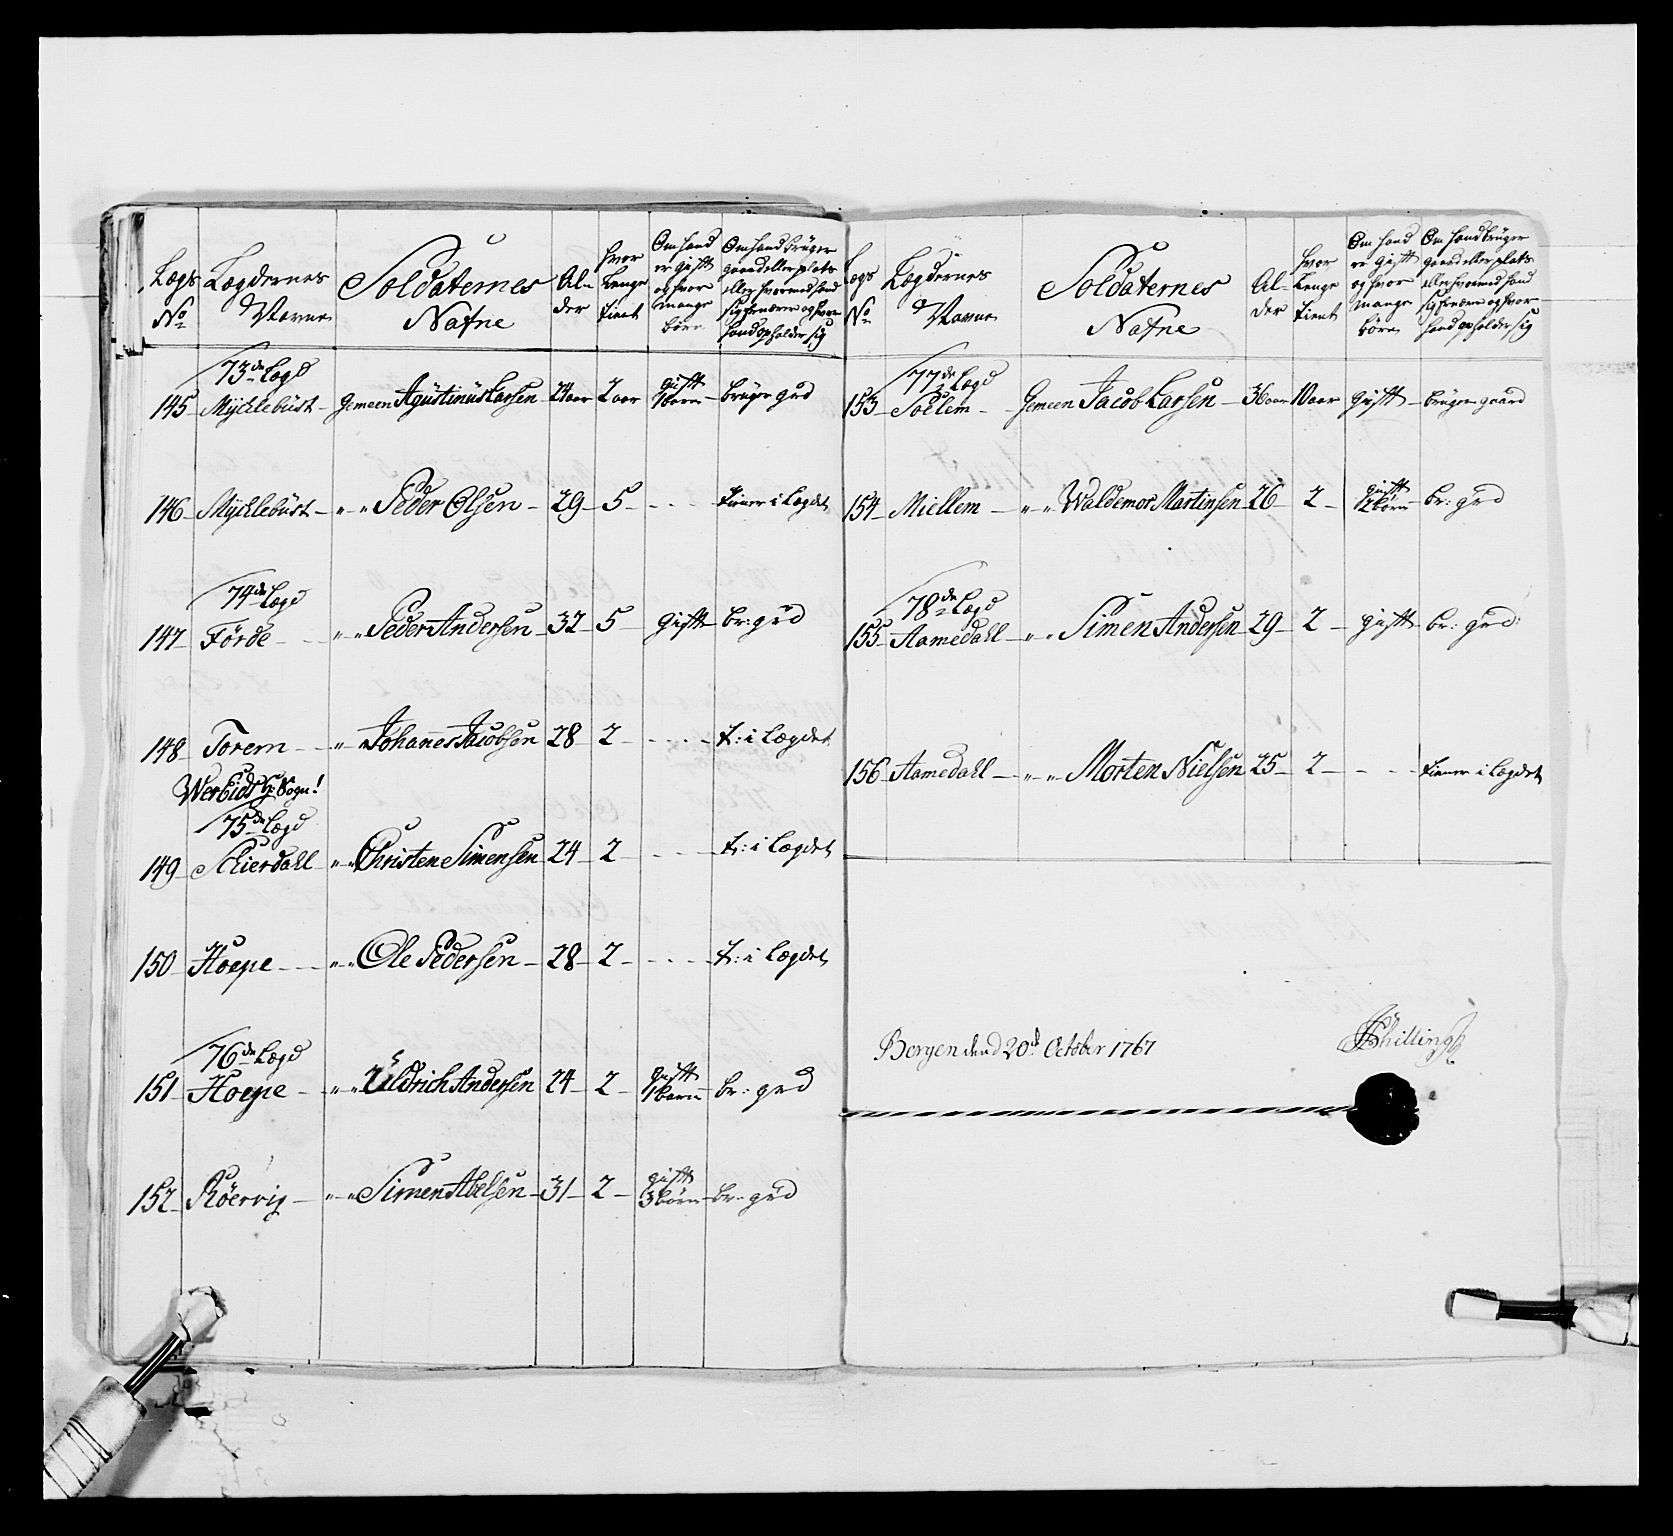 Lægs No
Lægdernes Navne
Soldaternes Nafne
Alder
Hvor Længe tient
Om hand er gift og hvor mange børn
Om hand brüger gaard eller plats eller hvormed hand sig ernærer og hvor hand opholder sig
73de Lægd
145 Myklebüst Gemeen Agüstinüs Larsen 24 aar 2 aar gift 1 barn brüger grd
146 Myklebüst " " Peder Olsen 29 5 - - - tiener i Lægdet
74de Lægd
147 Förde " " Peder Andersen 32 5 gift br: grd
148 Torem " Johannes Jacobsen 28 2 - - - t: i Lægdet
Wereids Sogn!
75de Lægd
149 Schierdahl " " Christen Simensen 24 2 - - - t: i Lægdet
150 Hoepe " " Ole Pedersen 28 2 - - - t: i Lægdet
76de Lægd
151 Hoepe " " Uldrich Andersen 24 2 gift 1 barn br: grd
152 Röervig " " Simen Abelsen 31 2 gift 3 börn br: grd
Lægs No
Lægdernes Navne
Soldaternes Nafne
Alder
Hvor Længe tient
Om hand er gift og hvor mange børn
Om hand brüger gaard eller plats eller hvormed hand sig ernærer og hvor hand opholder sig
77de Lægd
153 Soelem Gemeen Jacob Larsen 36 aar 10 aar gift brüger gaard
154 Miellem " " Waldemor Martinsen 26 2 gift 2 börn br: grd
78de Lægd
155 Aamedahl " " Simen Andersen 29 2 gift br: grd:
156 Aamedahl " " Morten Nielsen 25 2 - - tiener i Lægdet
Bergen dend 20de October 1767
Schilling